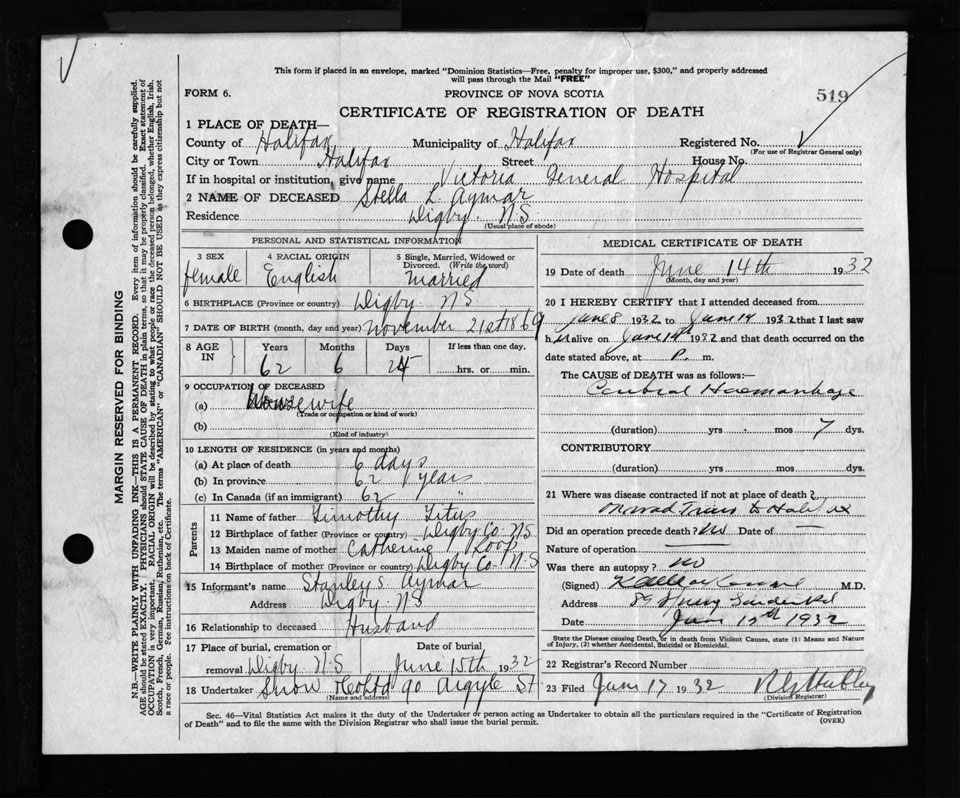 This form if placed in an envelope, marked "Dominion Statistics—Free, penalty for improper use, $300," and properly addressed
will pass through the Mail "FREE"
FORM 6.
PROVINCE OF NOVA SCOTIA
519
CERTIFICATE OF REGISTRATION OF DEATH
1 PLACE OF DEATH—
County of Halifax Municipality of Halifax Registered No.
(For use of Registrar General only)
City or Town Halifax Street House No.
If in hospital or institution, give name Victoria General Hospital
2 NAME OF DECEASED Stella L. Aymar
Residence Digby N.S
(Usual place of abode)
PERSONAL AND STATISTICAL INFORMATION
3 SEX 4 RACIAL ORIGIN 5 Single, Married, Widowed or
Divorced. (Write the word)
female English Married
6 BIRTHPLACE (Province or country) Digby N.S
7 DATE OF BIRTH (month, day and year) November 21st 1869
8 AGE IN Years Months Days If less than one day.
62 6 24 hrs. or min.
9 OCCUPATION OF DECEASED
(a) Housewife
(Trade or occupation or kind of work)
(b)
(Kind of industry)
10 LENGTH OF RESIDENCE (in years and months)
(a) At place of death 6 days
(b) In province 62 years
(c) In Canada (if an immigrant) 62 "
Parents
11 Name of father Timothy Titus
12 Birthplace of father (Province or country) Digby Co. N.S
13 Maiden name of mother Catherine Roop
14 Birthplace of mother (Province or country) Digby Co. N.S
15 Informant's name Stanley S Aymar
Address Digby N.S
16 Relationship to deceased Husband
17 Place of burial, cremation or Date of burial
removal Digby N.S June 15th 1932
18 Undertaker Snow & Co Ltd 90 Argyle St
(Name and address)
MEDICAL CERTIFICATE OF DEATH
19 Date of death June 14th 1932
(Month, day and year)
20 I HEREBY CERTIFY that I attended deceased from
June 8 1932 to June 14 1932 that I last saw
h er alive on June 14th 1932 and that death occurred on the
date stated above, at P. m.
The CAUSE OF DEATH was as follows:—
Cerebral Haemorrhage
(duration) yrs. mos 7 dys.
CONTRIBUTORY
(duration) yrs. mos. dys.
21 Where was disease contracted if not at place of death?
On road Truro to Halifax
Did an operation precede death? No Date of —
Nature of operation —
Was there an autopsy? No
(Signed) M.D.
Address 89 Spring Garden Rd
Date June 15th 1932
State the Disease causing Death, or in death from Violent Causes, state (1) Means and Nature
of Injury, (2) whether Accidental, Suicidal or Homicidal.
22 Registrar's Record Number
23 Filed June 17 1932
(Division Registrar)
Sec. 46—Vital Statistics Act makes it the duty of the Undertaker or person acting as Undertaker to obtain all the particulars required in the "Certificate of Registration
of Death" and to file the same with the Division Registrar who shall issue the burial permit.
(OVER)
MARGIN RESERVED FOR BINDING
N.B.—WRITE PLAINLY WITH UNFADING INK—THIS IS A PERMANENT RECORD. Every item of information should be carefully supplied.
AGE should be stated EXACTLY. PHYSICIANS should STATE CAUSE OF DEATH in plain terms, so that it may be properly classified. Exact statement of
OCCUPATION is very important. RACIAL ORIGIN will be described by stating to what people or race the deceased person belonged, whether English, Irish,
Scotch, French, German, Russian, Ruthenian, etc. The terms "AMERICAN" or "CANADIAN" SHOULD NOT BE USED as they express citizenship but not
a race or people. Fee instructions on back of Certificate.